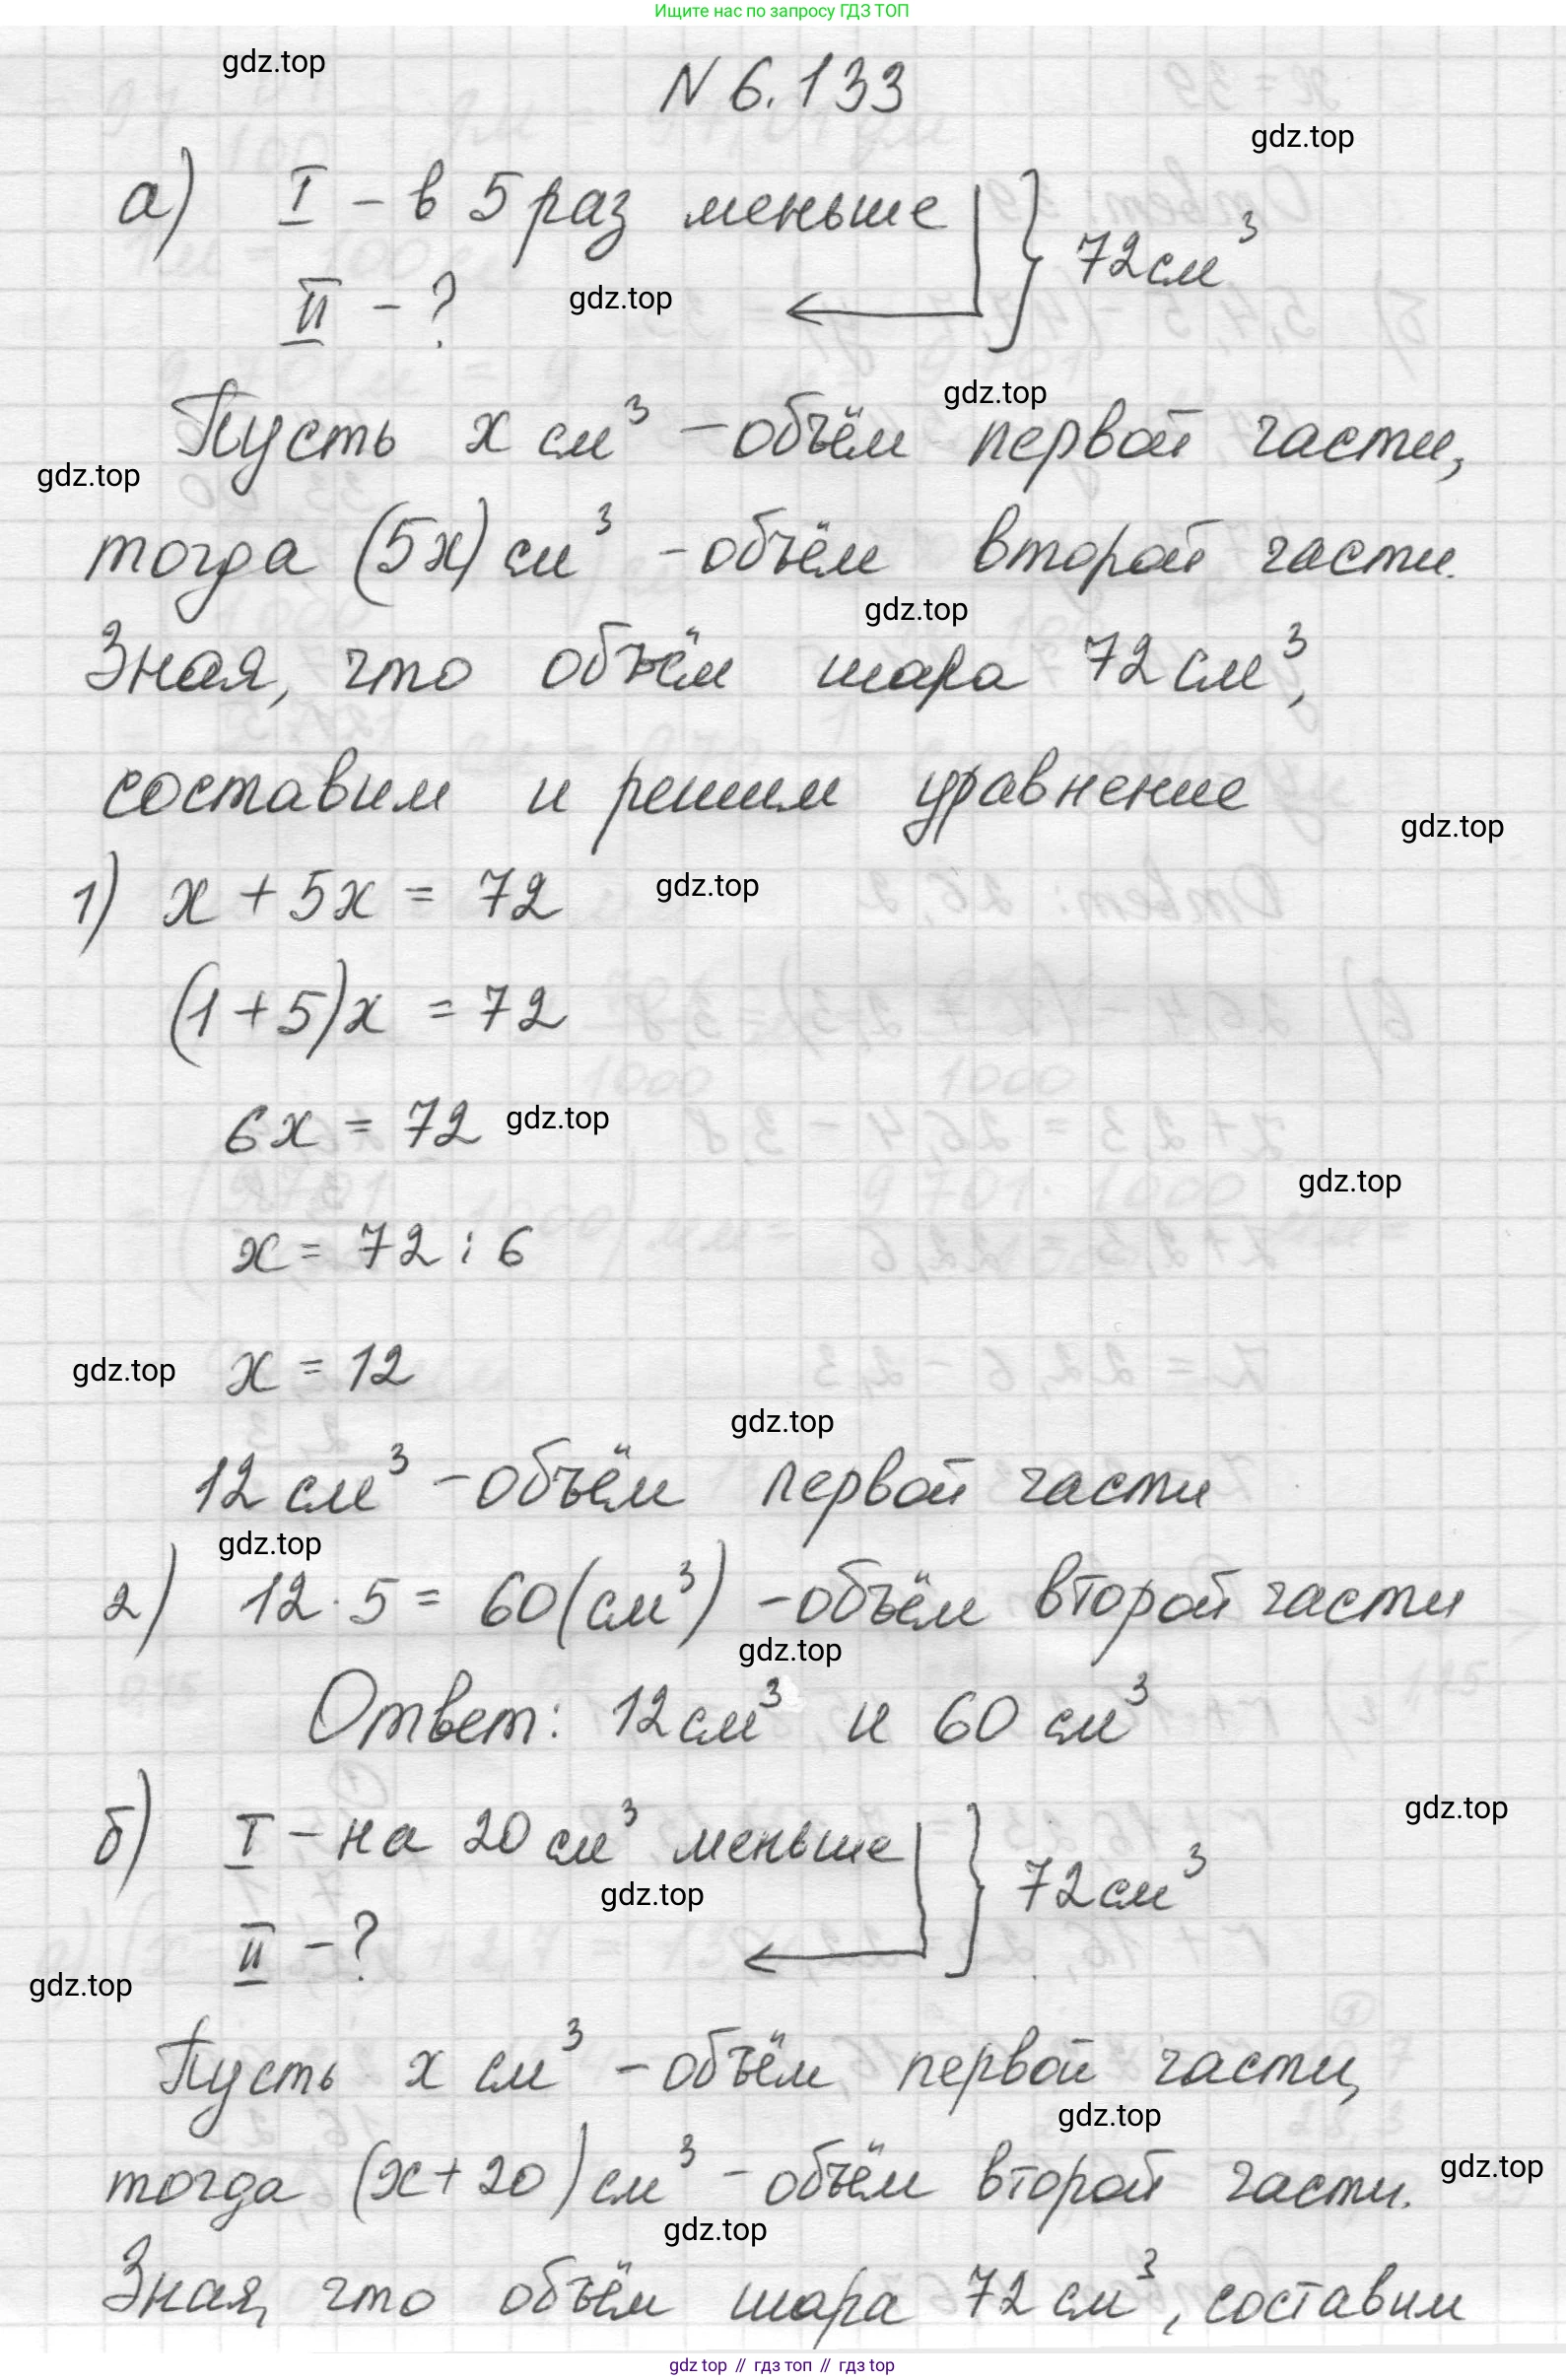 Ищите нас по запросу ГДЗ ТОП
gdz.top
N 6.133
gdz.top
а) I – в 5 раз меньше
72 см³
II – ?
gdz.top
gdz.top
Пусть x см³ – объём первой части,
gdz.top
тогда (5x) см³ – объём второй части.
gdz.top
Зная, что объём шара 72 см³,
составим и решим уравнение
gdz.top
1) x + 5x = 72
gdz.top
(1 + 5)x = 72
6x = 72
gdz.top
gdz.top
x = 72 : 6
x = 12
gdz.top
gdz.top
12 см³ – объём первой части
gdz.top
2) 12 · 5 = 60 (см³) – объём второй части
gdz.top
Ответ: 12 см³ и 60 см³
gdz.top
б) I – на 20 см³ меньше
72 см³
gdz.top
II – ?
gdz.top
Пусть x см³ – объём первой части,
gdz.top
тогда (x + 20) см³ – объём второй части.
gdz.top
gdz.top
Зная, что объём шара 72 см³, составим
gdz top // гдз топ // гдз top